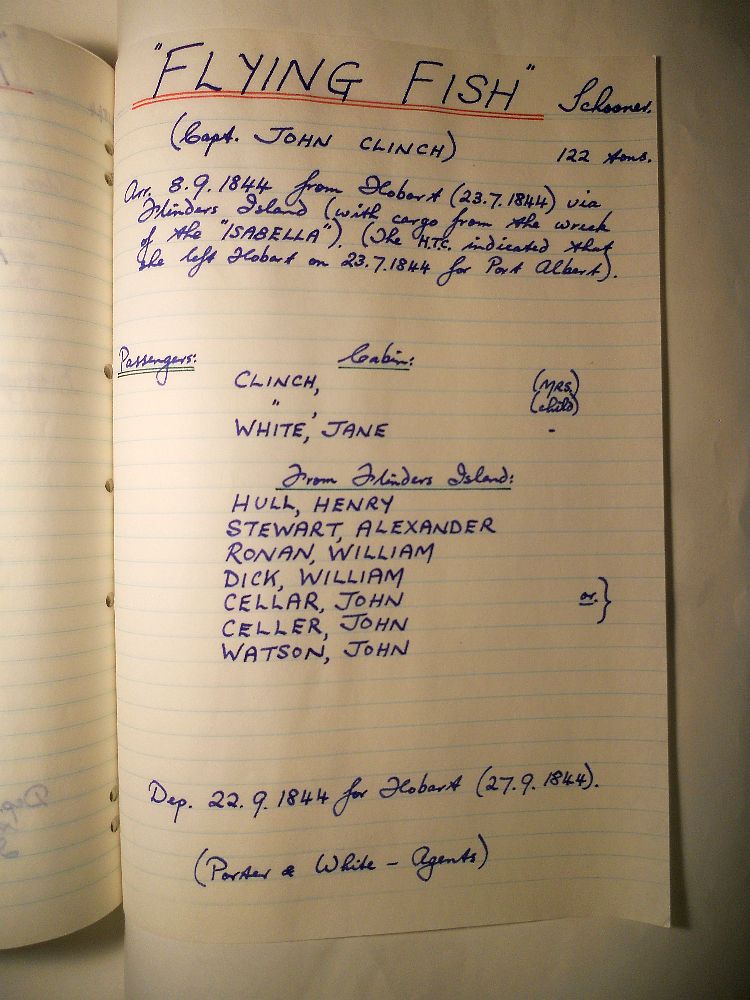 "FLYING FISH" Schooner.
(Capt. JOHN CLINCH) 122 tons.
Arr. 8.9.1844 from Hobart (23.7.1844) via
Flinders Island (with cargo from the wreck
of the "ISABELLA"). (The H.T.C. indicated that
she left Hobart on 23.7.1844 for Port Albert).
Passengers: Cabin:
CLINCH, (MRS.)
" , (child)
WHITE, JANE -
From Flinders Island:
HULL, HENRY
STEWART, ALEXANDER
RONAN, WILLIAM
DICK, WILLIAM
CELLAR, JOHN or }
CELLER, JOHN
WATSON, JOHN
Dep. 22.9.1844 for Hobart (27.9.1844).
(Porter & White - Agents)